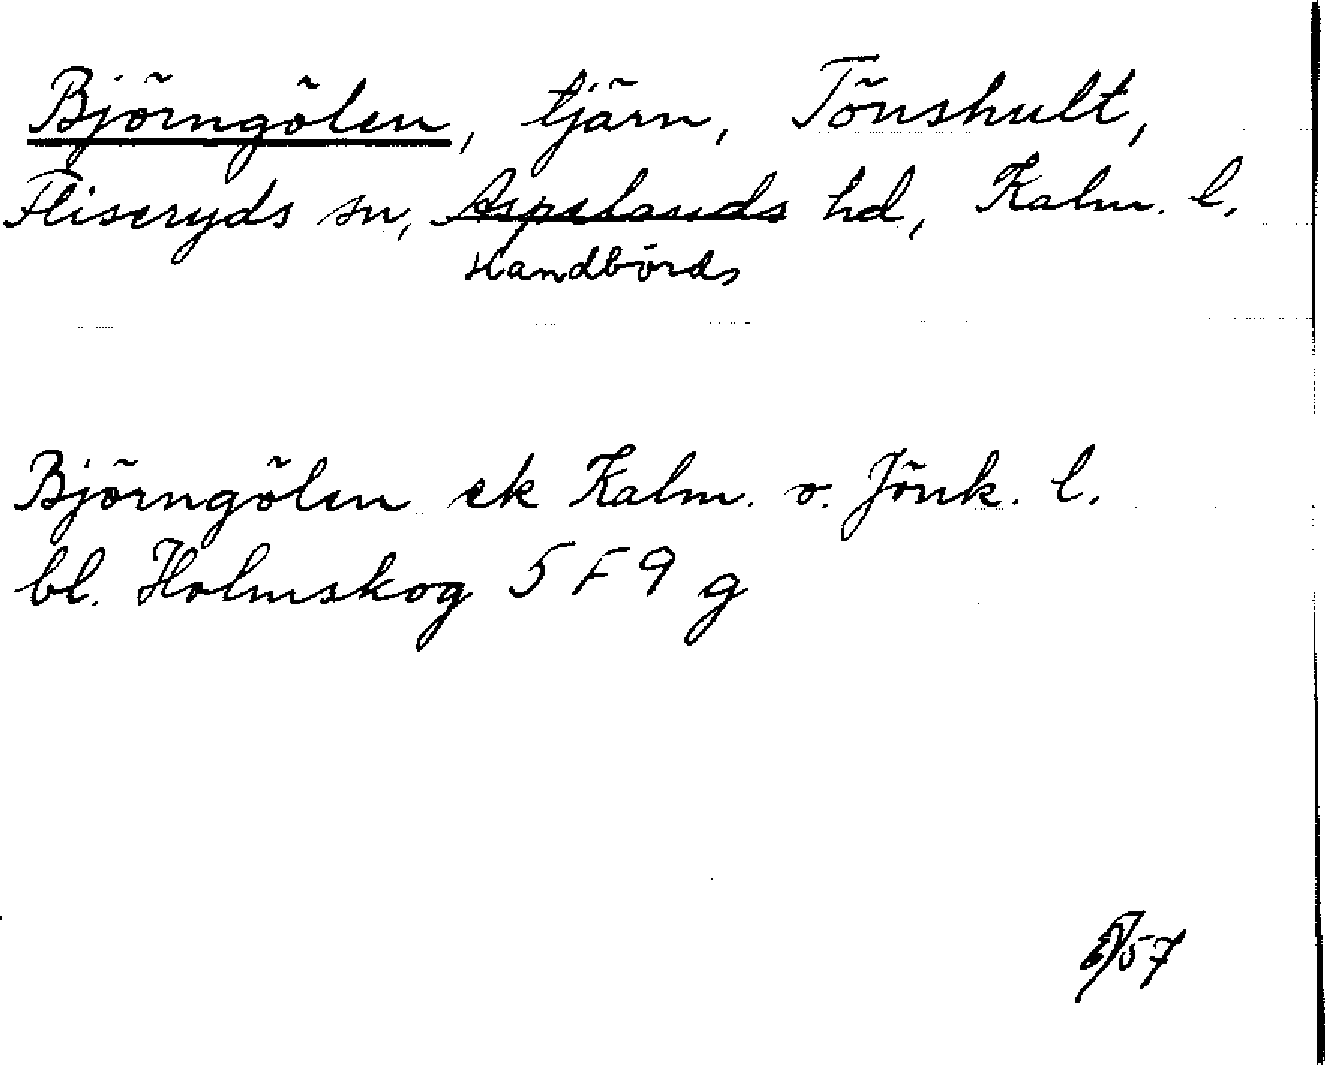 Björngölen, tjärn, Tönshult,
Fliseryds sn, Aspelands hd, Kalm. l.
Handbörds
Björngölen ek Kalm. o. Jönk. l.
bl. Holmskog 5 F 9 g
57